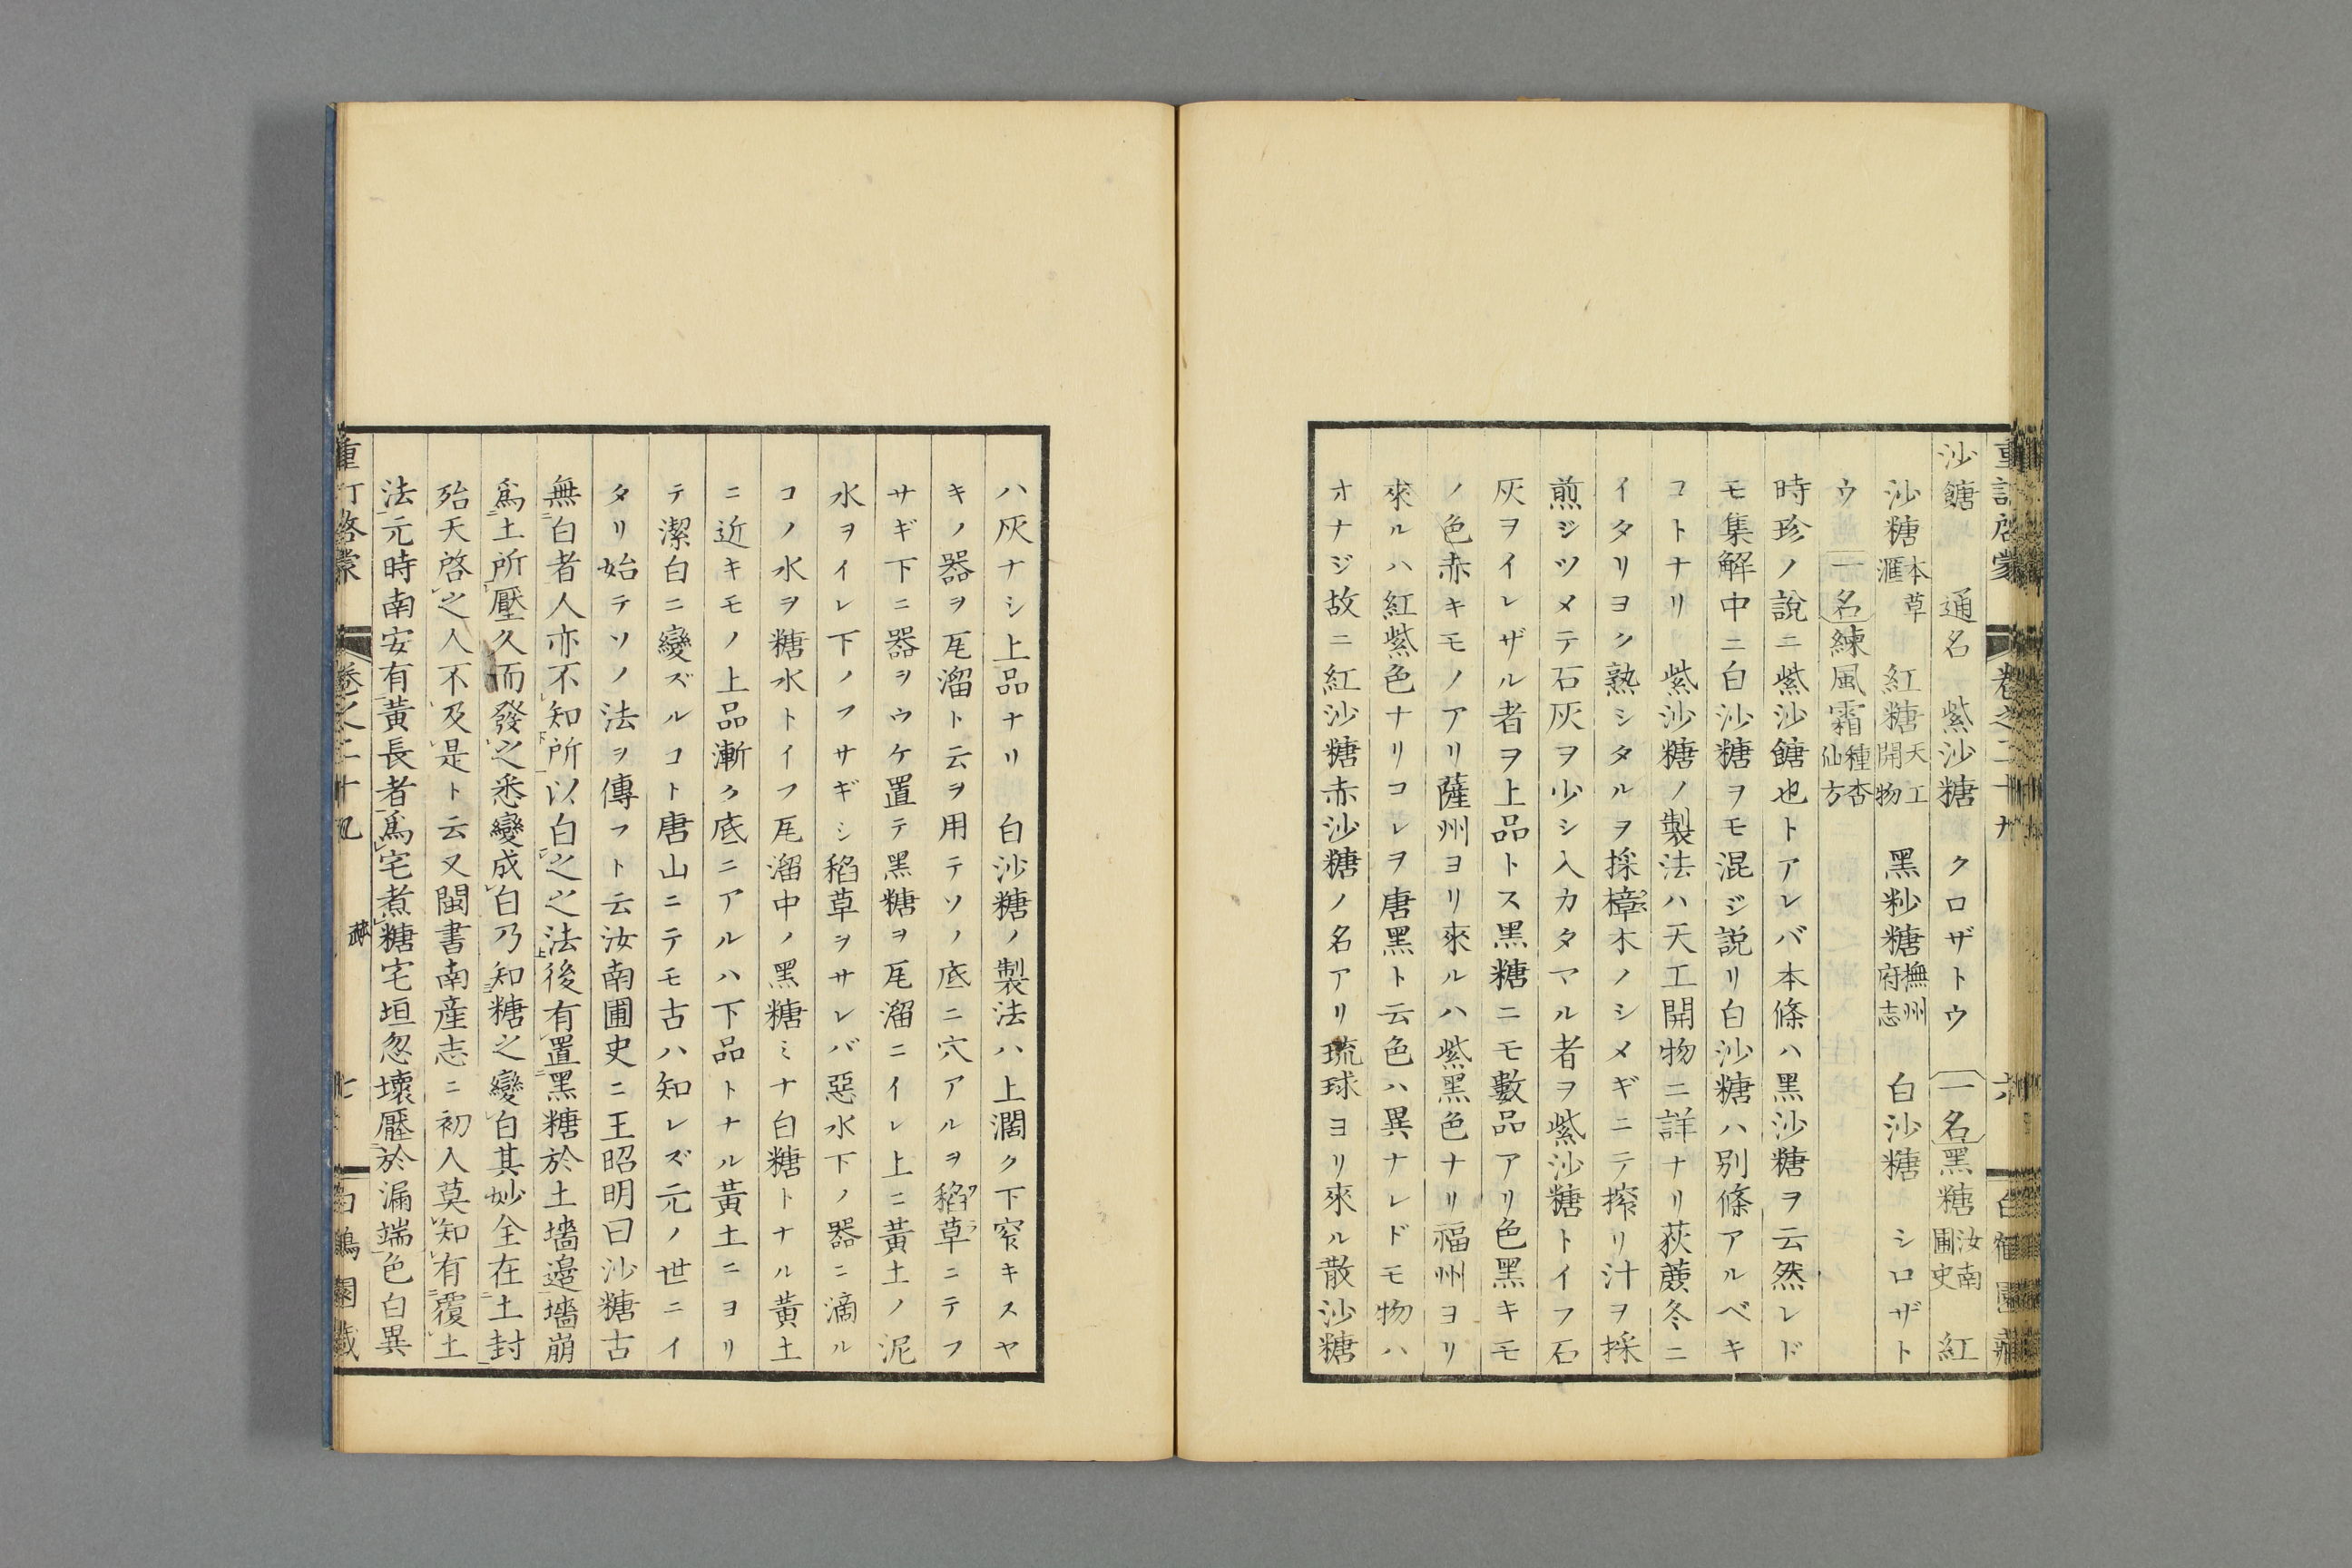 沙餹　通名　紫沙糖　クロザトウ　一名黑糖汝南圃史　紅
沙糖本草滙　紅糖天工開物　黑粆糖撫州府志　白沙糖　シロザト
ウ　一名練風霜種杏仙方
時珍ノ說ニ紫沙餹也トアレバ本條ハ黑沙糖ヲ云然レド
モ集解中ニ白沙糖ヲモ混ジ説リ白沙糖ハ別條アルベキ
コトナリ　紫沙糖ノ製法ハ天工開物ニ詳ナリ荻蔗冬ニ
イタリヨク熟シタルヲ採樟木ノシメギニテ搾リ汁ヲ採
煎ジツメテ石灰ヲ少シ入カタマル者ヲ紫沙糖トイフ石
灰ヲイレザル者ヲ上品トス黑糖ニモ數品アリ色黑キモ
ノ色赤キモノアリ薩州ヨリ來ルハ紫黑色ナリ福州ヨリ
來ルハ紅紫色ナリコレヲ唐黑ト云色ハ異ナレドモ物ハ
オナジ故ニ紅沙糖赤沙糖ノ名アリ琉球ヨリ來ル散沙糖
ハ灰ナシ上品ナリ　白沙糖ノ製法ハ上濶ク下窄キスヤ
キノ器ヲ瓦溜ト云ヲ用テソノ底ニ穴アルヲ稻草ニテフ
サギ下ニ器ヲウケ置テ黑糖ヲ瓦溜ニイレ上ニ黃土ノ泥
水ヲイレ下ノフサギシ稻草ヲサレバ惡水下ノ器ニ滴ル
コノ水ヲ糖水トイフ瓦溜中ノ黑糖ミナ白糖トナル黃土
ニ近キモノ上品漸ク底ニアルハ下品トナル黃土ニヨリ
テ潔白ニ變ズルコト唐山ニテモ古ハ知レズ元ノ世ニイ
タリ始テソノ法ヲ傳フト云汝南圃史ニ王昭明曰沙糖古
無白者人亦不知所以白之之法後有置黑糖於土墻邉墻崩
爲土所壓久而發之悉變成白乃知糖之變白其妙全在土封
殆天啓之人不及是ト云又閩書南産志ニ初人莫知有覆土
法元時南安有黃長者爲宅煮糖宅垣忽壞壓於漏端色白異
重訂啓蒙　卷之二十九　七